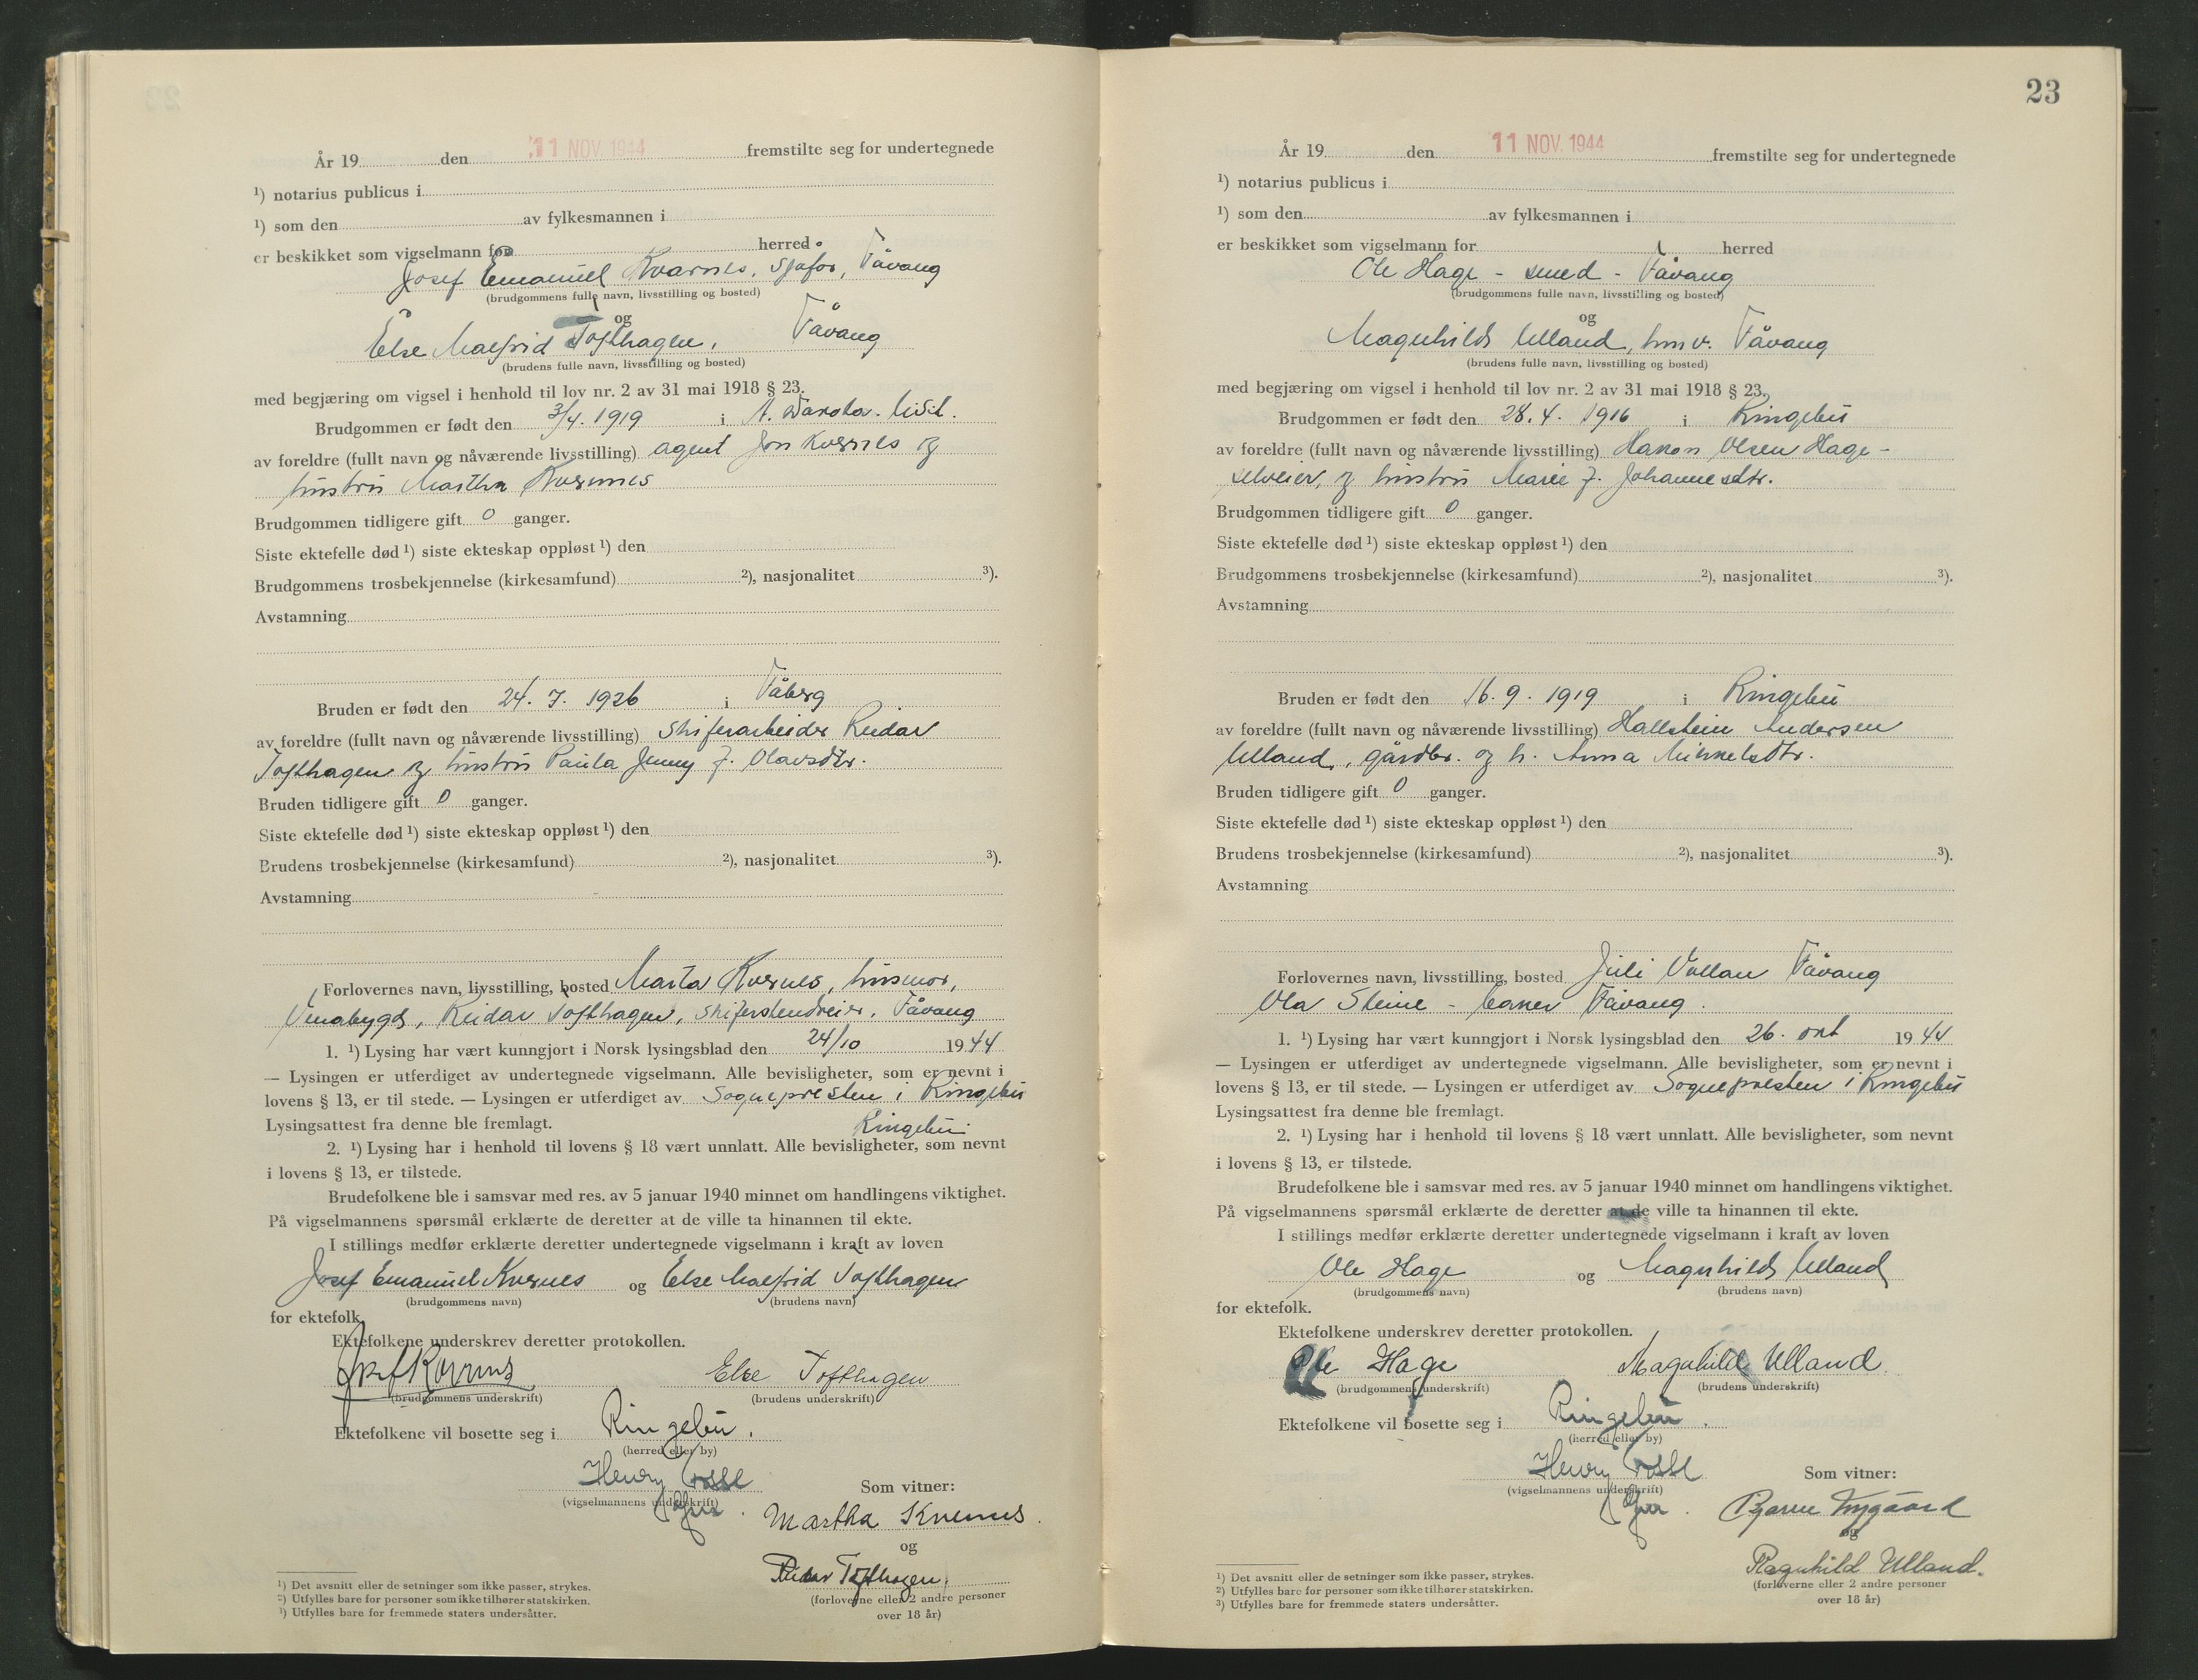 År 19 den 11 NOV. 1944 fremstilte seg for undertegnede
¹) notarius publicus i
¹) som den av fylkesmannen i
er beskikket som vigselmann for herred
Josef Emanuel Kvarnes, sjåfør, Fåvang
(brudgommens fulle navn, livsstilling og bosted)
og
Else Malfrid Tofthagen, Fåvang
(brudens fulle navn, livsstilling og bosted)
med begjæring om vigsel i henhold til lov nr. 2 av 31 mai 1918 § 23.
Brudgommen er født den 3/4. 1919 i
av foreldre (fullt navn og nåværende livsstilling) agent Jon Kvernes og
hustru Martha Kvernes
Brudgommen tidligere gift 0 ganger.
Siste ektefelle død ¹) siste ekteskap oppløst ¹) den
Brudgommens trosbekjennelse (kirkesamfund) ²), nasjonalitet ³).
Avstamning
Bruden er født den 24. 7. 1926 i Fåberg
av foreldre (fullt navn og nåværende livsstilling) skiferarbeider Reidar
Tofthagen og hustru Paula Jenny f. Olavsdtr.
Bruden tidligere gift 0 ganger.
Siste ektefelle død ¹) siste ekteskap oppløst ¹) den
Brudens trosbekjennelse (kirkesamfund) ²), nasjonalitet ³).
Avstamning
Forlovernes navn, livsstilling, bosted Marta Kvernes, husmor,
Venabygd, Reidar Tofthagen, Fåvang
1. ¹) Lysing har vært kunngjort i Norsk lysingsblad den 24/10 1944
— Lysingen er utferdiget av undertegnede vigselmann. Alle bevisligheter, som er nevnt i
lovens § 13, er til stede. — Lysingen er utferdiget av Sognepresten i Ringebu
Lysingsattest fra denne ble fremlagt. Ringebu
2. ¹) Lysing har i henhold til lovens § 18 vært unnlatt. Alle bevisligheter, som nevnt
i lovens § 13, er tilstede.
Brudefolkene ble i samsvar med res. av 5 januar 1940 minnet om handlingens viktighet.
På vigselmannens spørsmål erklærte de deretter at de ville ta hinannen til ekte.
I stillings medfør erklærte deretter undertegnede vigselmann i kraft av loven
Josef Emanuel Kvernes og Else Malfrid Tofthagen
(brudgommens navn) (brudens navn)
for ektefolk.
Ektefolkene underskrev deretter protokollen.
Josef Kvernes Else Tofthagen
(brudgommens underskrift) (brudens underskrift)
Ektefolkene vil bosette seg i Ringebu.
(herred eller by)
Henry
(vigselmannens underskrift)
Som vitner:
Martha Kvernes.
og
Reidar Tofthagen.
(forloverne eller 2 andre personer
over 18 år)
¹) Det avsnitt eller de setninger som ikke passer, strykes.
²) Utfylles bare for personer som ikke tilhører statskirken.
³) Utfylles bare for fremmede staters undersåtter.
23
År 19 den 11 NOV. 1944 fremstilte seg for undertegnede
¹) notarius publicus i
¹) som den av fylkesmannen i
er beskikket som vigselmann for herred
Ole Hage - smed - Fåvang
(brudgommens fulle navn, livsstilling og bosted)
og
Magnhild Ulland, husv. Fåvang
(brudens fulle navn, livsstilling og bosted)
med begjæring om vigsel i henhold til lov nr. 2 av 31 mai 1918 § 23.
Brudgommen er født den 28. 4. 1916 i Ringebu
av foreldre (fullt navn og nåværende livsstilling) Hakon Olsen Hage -
selveier, og hustru Marie f. Johannesdtr.
Brudgommen tidligere gift 0 ganger.
Siste ektefelle død ¹) siste ekteskap oppløst ¹) den
Brudgommens trosbekjennelse (kirkesamfund) ²), nasjonalitet ³).
Avstamning
Bruden er født den 16. 9. 1919 i Ringebu
av foreldre (fullt navn og nåværende livsstilling) Hallstein Andersen
Ulland, gårdbr. og h. Anna Mikkelsdtr.
Bruden tidligere gift 0 ganger.
Siste ektefelle død ¹) siste ekteskap oppløst ¹) den
Brudens trosbekjennelse (kirkesamfund) ²), nasjonalitet ³).
Avstamning
Forlovernes navn, livsstilling, bosted Juli Vollan Fåvang
Ola Steine - Fåvang.
1. ¹) Lysing har vært kunngjort i Norsk lysingsblad den 26. okt 1944
— Lysingen er utferdiget av undertegnede vigselmann. Alle bevisligheter, som er nevnt i
lovens § 13, er til stede. — Lysingen er utferdiget av Sognepresten i Ringebu
Lysingsattest fra denne ble fremlagt.
2. ¹) Lysing har i henhold til lovens § 18 vært unnlatt. Alle bevisligheter, som nevnt
i lovens § 13, er tilstede.
Brudefolkene ble i samsvar med res. av 5 januar 1940 minnet om handlingens viktighet.
På vigselmannens spørsmål erklærte de deretter at de ville ta hinannen til ekte.
I stillings medfør erklærte deretter undertegnede vigselmann i kraft av loven
Ole Hage og Magnhild Ulland
(brudgommens navn) (brudens navn)
for ektefolk.
Ektefolkene underskrev deretter protokollen.
Ole Hage Magnhild Ulland.
(brudgommens underskrift) (brudens underskrift)
Ektefolkene vil bosette seg i Ringebu.
(herred eller by)
Henry
(vigselmannens underskrift)
Som vitner:
Bjarne Nygaard
og
Ragnhild Ulland.
(forloverne eller 2 andre personer
over 18 år)
¹) Det avsnitt eller de setninger som ikke passer, strykes.
²) Utfylles bare for personer som ikke tilhører statskirken.
³) Utfylles bare for fremmede staters undersåtter.